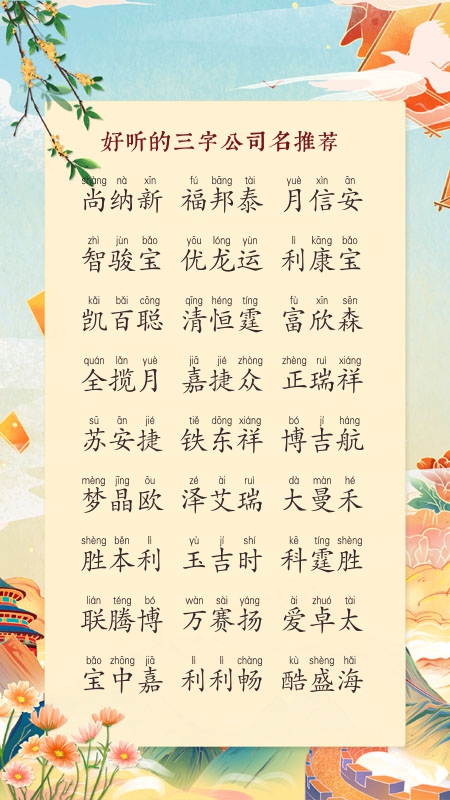 好听的三字公司名推荐
shàng nà xīn fú bāng tài yuè xìn ān
尚纳新 福邦泰 月信安
zhì jùn bǎo yōu lóng yùn lì kāng bǎo
智骏宝 优龙运 利康宝
kǎi bǎi cōng qīng héng tíng fù xīn sēn
凯百聪 清恒霆 富欣森
quán lǎn yuè jiā jié zhòng zhèng ruì xiáng
全揽月 嘉捷众 正瑞祥
sū ān jié tiě dōng xiáng bó jí háng
苏安捷 铁东祥 博吉航
mèng jīng ōu zé ài ruì dà màn hé
梦晶欧 泽艾瑞 大曼禾
shèng běn lì yù jí shí kē tíng shèng
胜本利 玉吉时 科霆胜
lián téng bó wàn sài yáng ài zhuó tài
联腾博 万赛扬 爱卓太
bǎo zhōng jiā lì lì chàng kù shèng hǎi
宝中嘉 利利畅 酷盛海